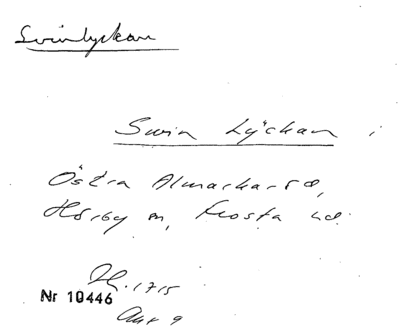 Svinlyckan
Swin Lÿckan i
Östra Almarkaröd,
Hörby sn, Frosta hd.
1715
Nr 10446
Akt 9